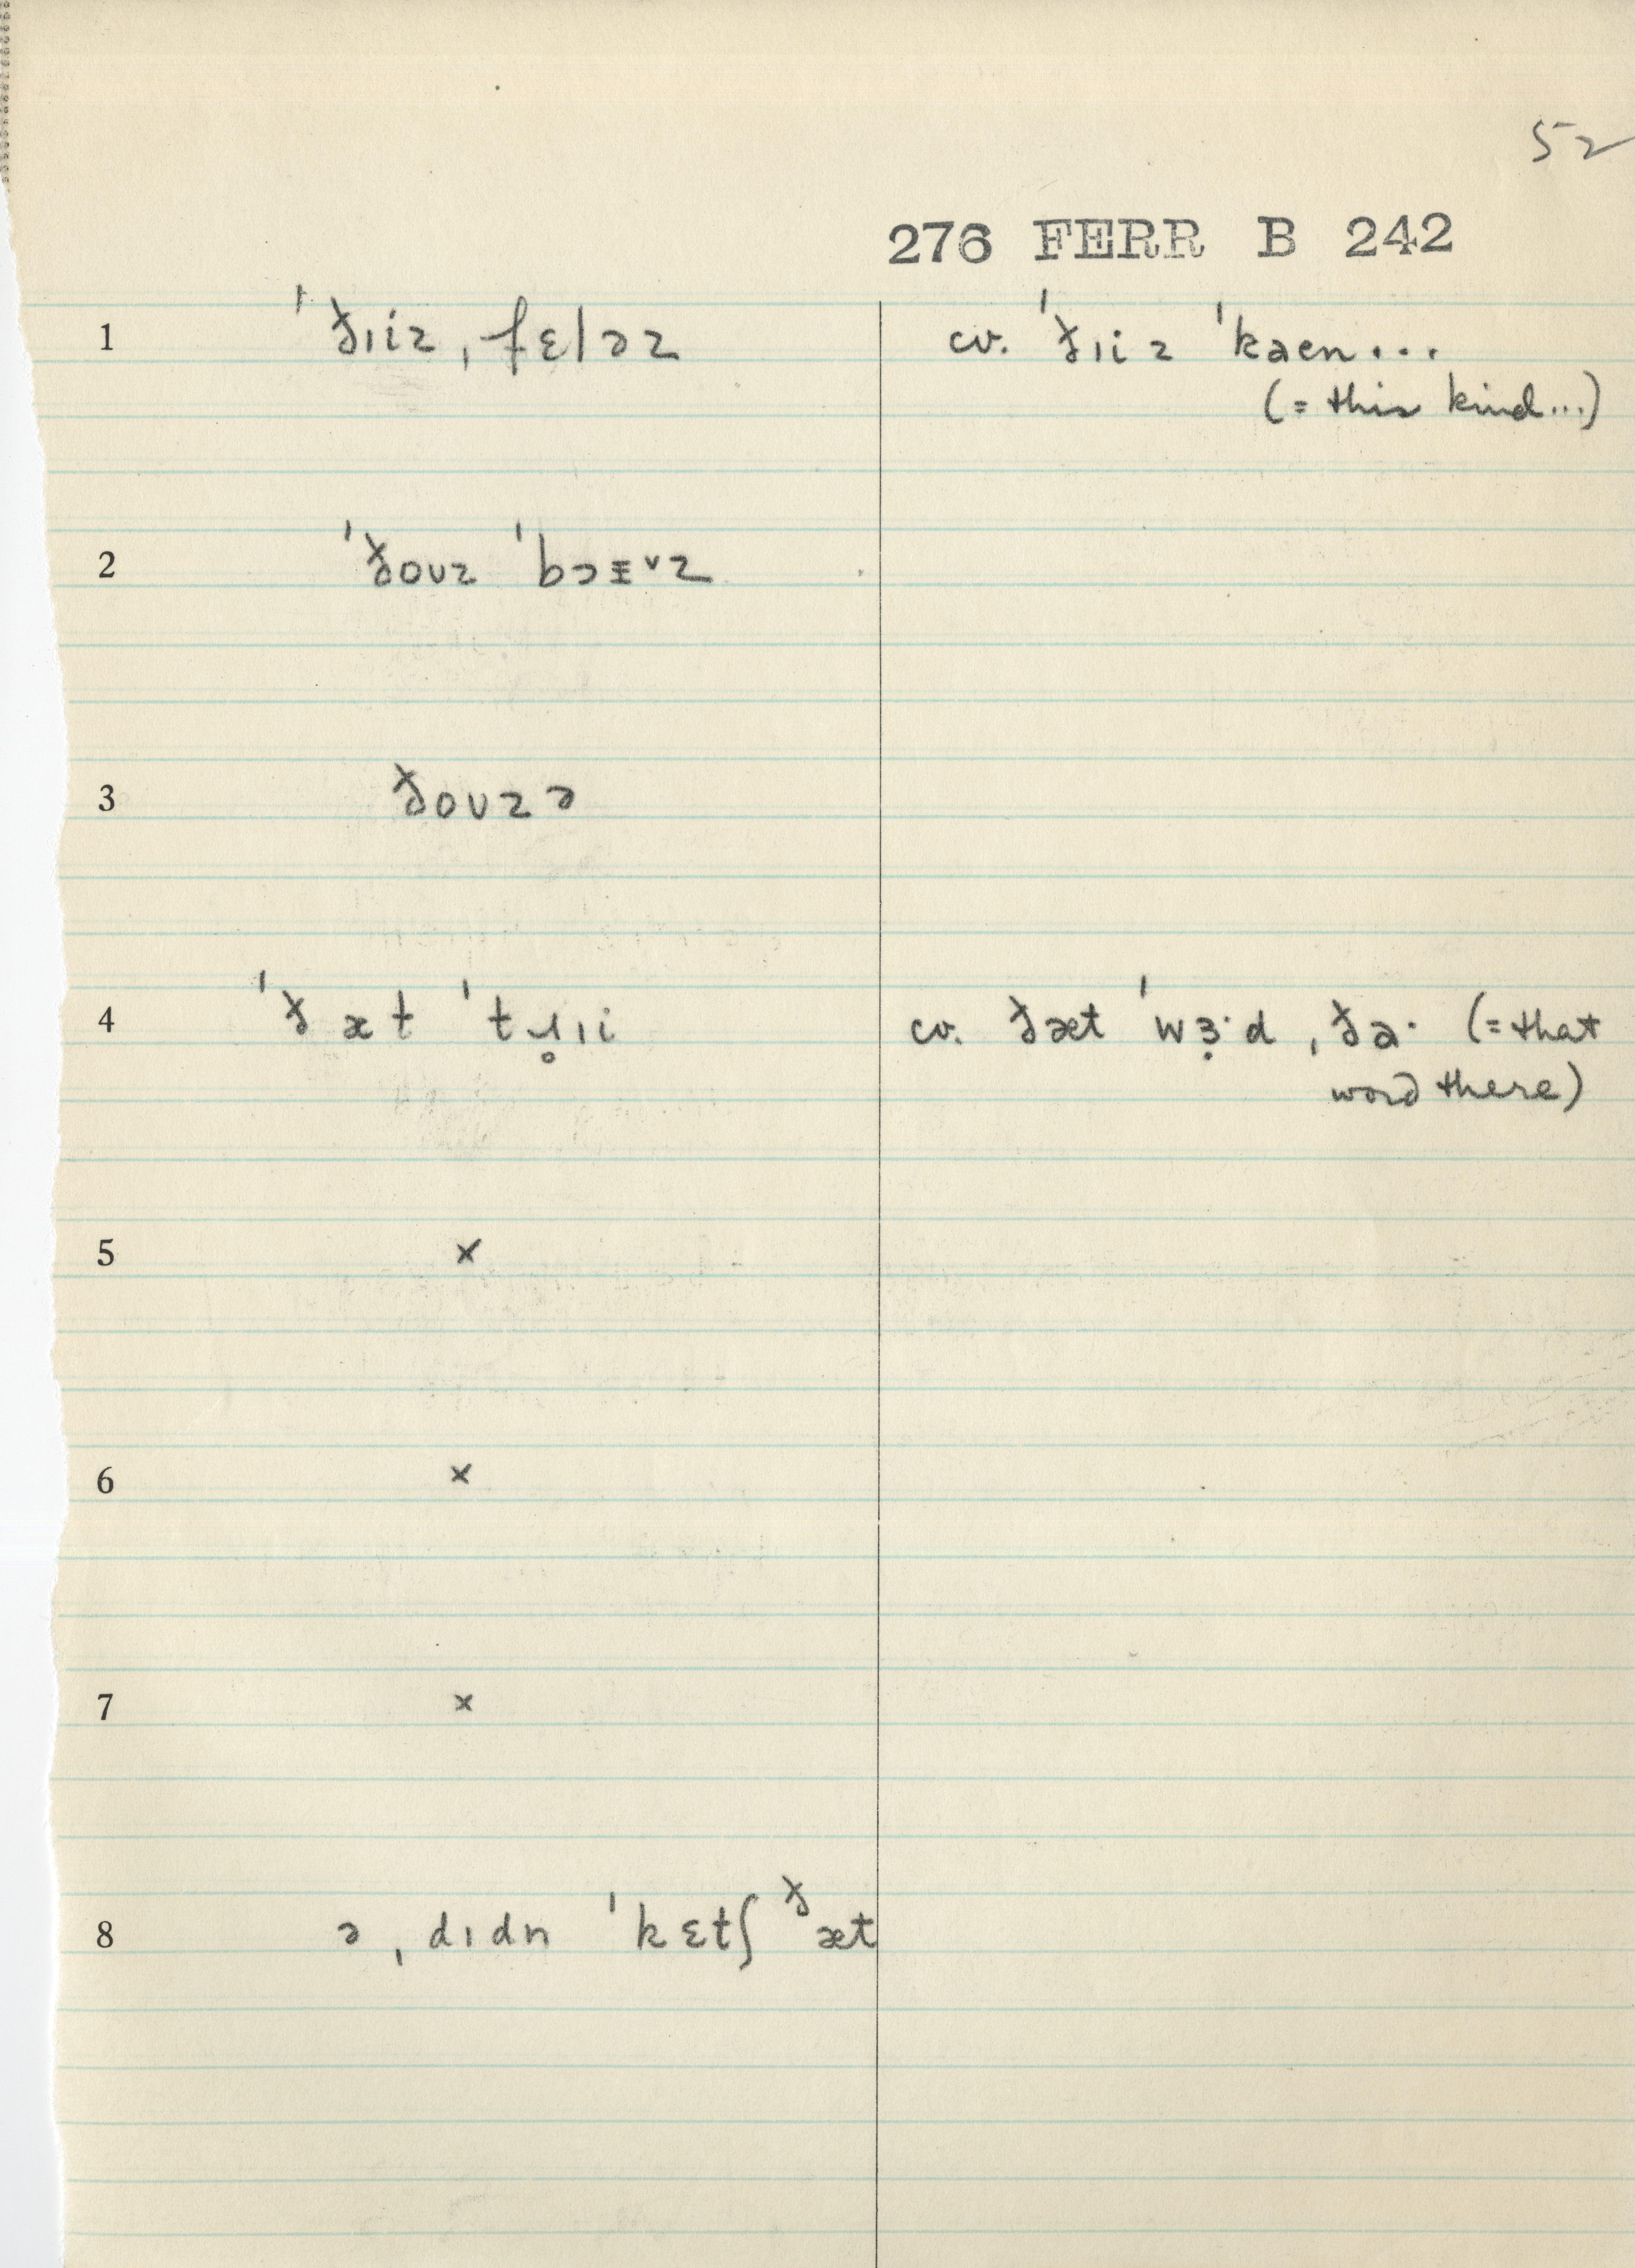 52
276 FERR B 242
1 ˈðɪiz ˌfɛləz cv. ˈðɪiz ˈkaen...
(= this kind...)
2 ˈðoʊz ˈbɔɪᵛz
3 ðoʊzə
4 ˈðæt ˈtɹ̥ɪi cv. ðæt ˈwɜ̣·d ˌðə· (= that
word there)
5 ×
6 ×
7 ×
8 ə ˌdɪdn ˈkɛtʃ ðæt